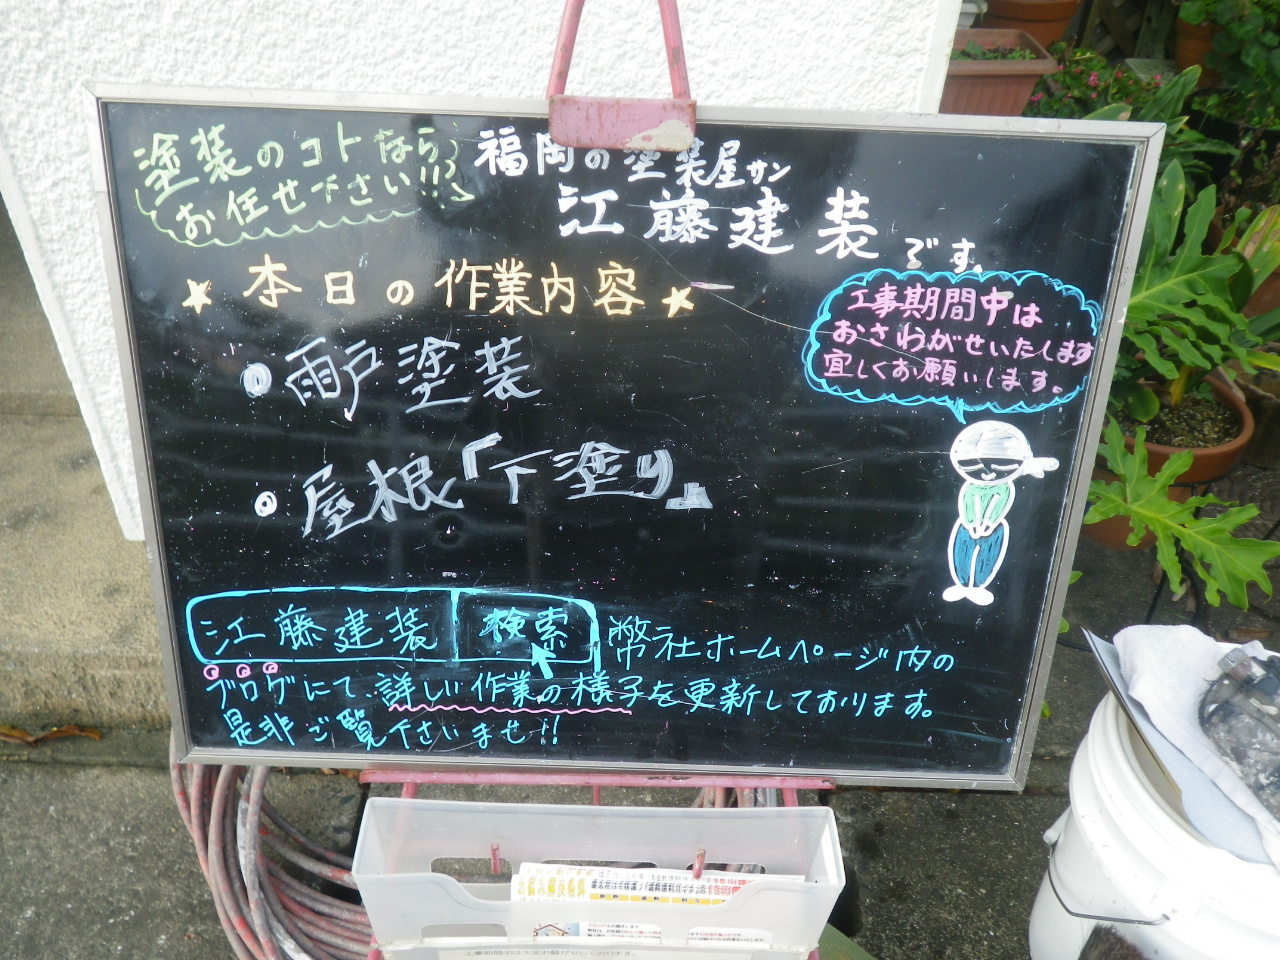 塗装のコトなら
お任せ下さい!!
福岡の塗装屋サン
江藤建装です。
★本日の作業内容★
工事期間中は
おさわがせいたします
宜しくお願いします。
・雨戸塗装
・屋根「下塗り」
江藤建装 検索
弊社ホームページ内の
ブログにて詳しい作業の様子を更新しております。
是非ご覧下さいませ!!